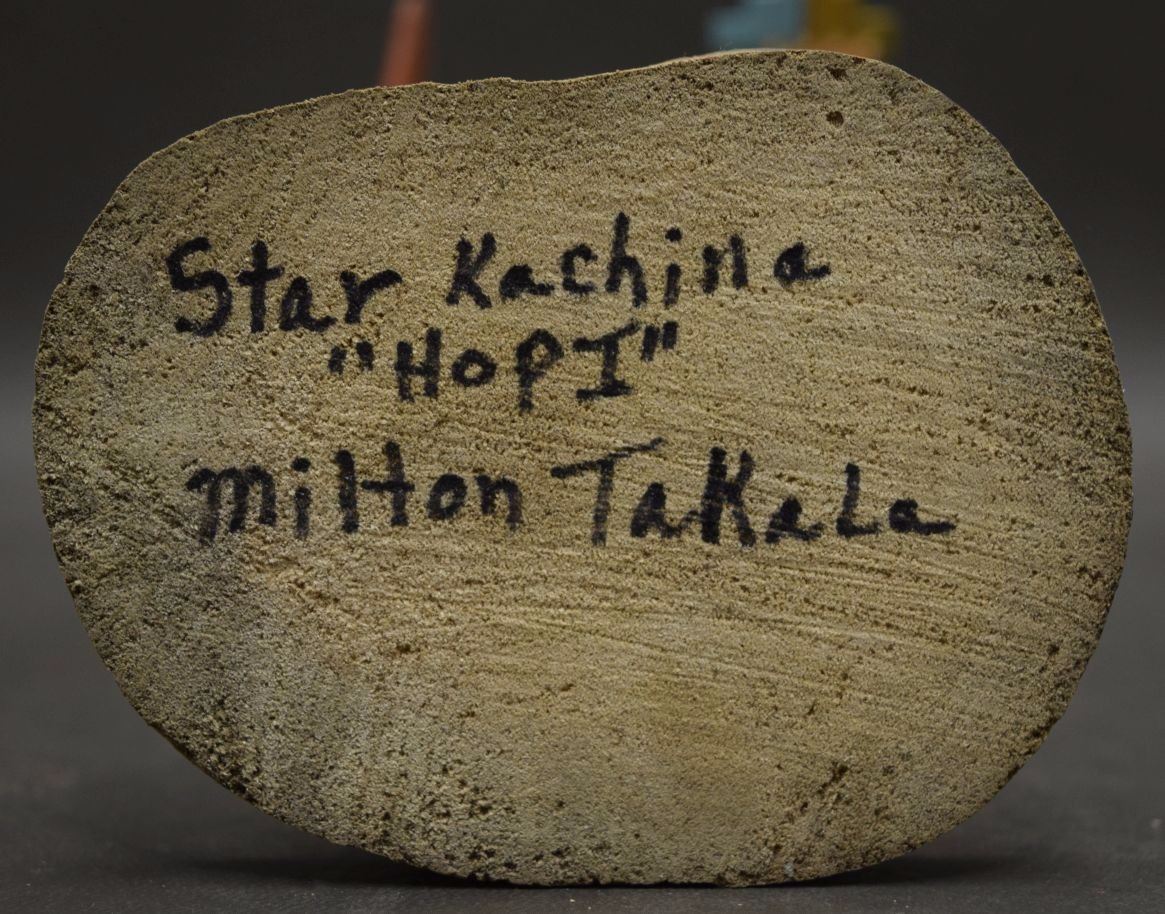 Star Kachina
"HOPI"
Milton TaKaLa